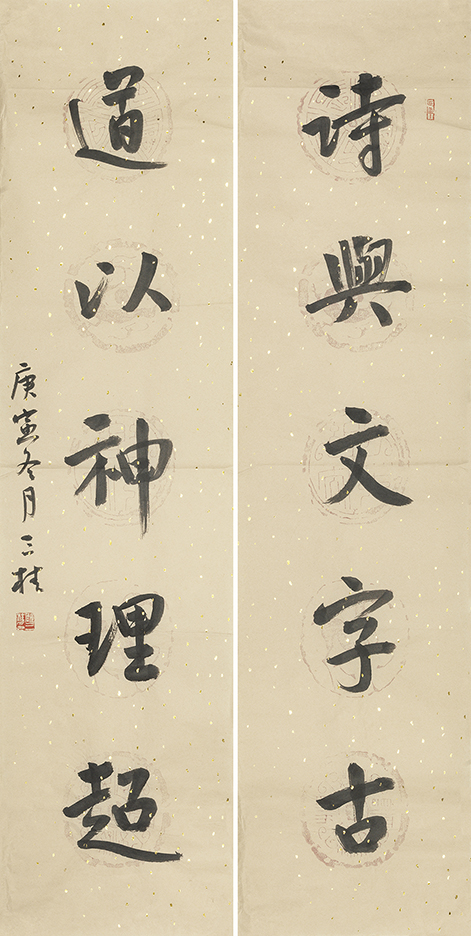 詩與文字古
道以神理超
庚寅冬月三桂